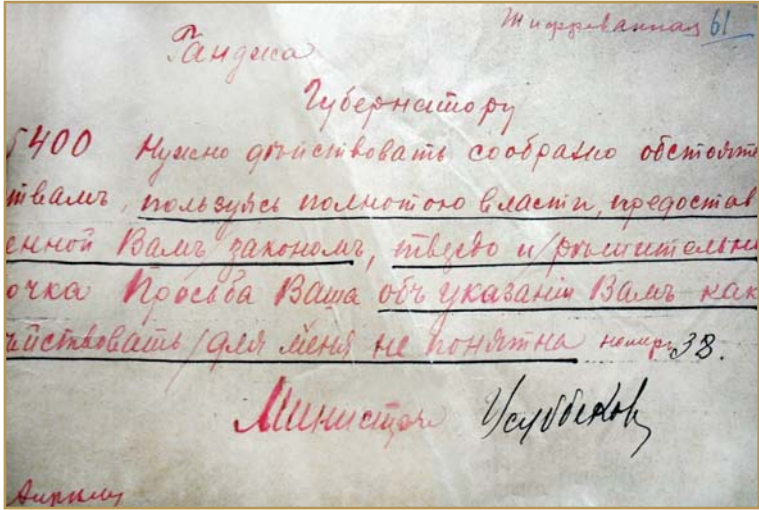 Шифрованная 61
Ганджа
Губернатору
5400 Нужно дѣйствовать сообразно обстояте
твамъ, пользуясь полнотою власти, предостав
енной Вамъ закономъ, твердо и рѣшительно
очка Просьба Ваша объ указаніи Вамъ как
ѣйствовать для меня не понятна номеръ 38.
Министръ Усуббеков